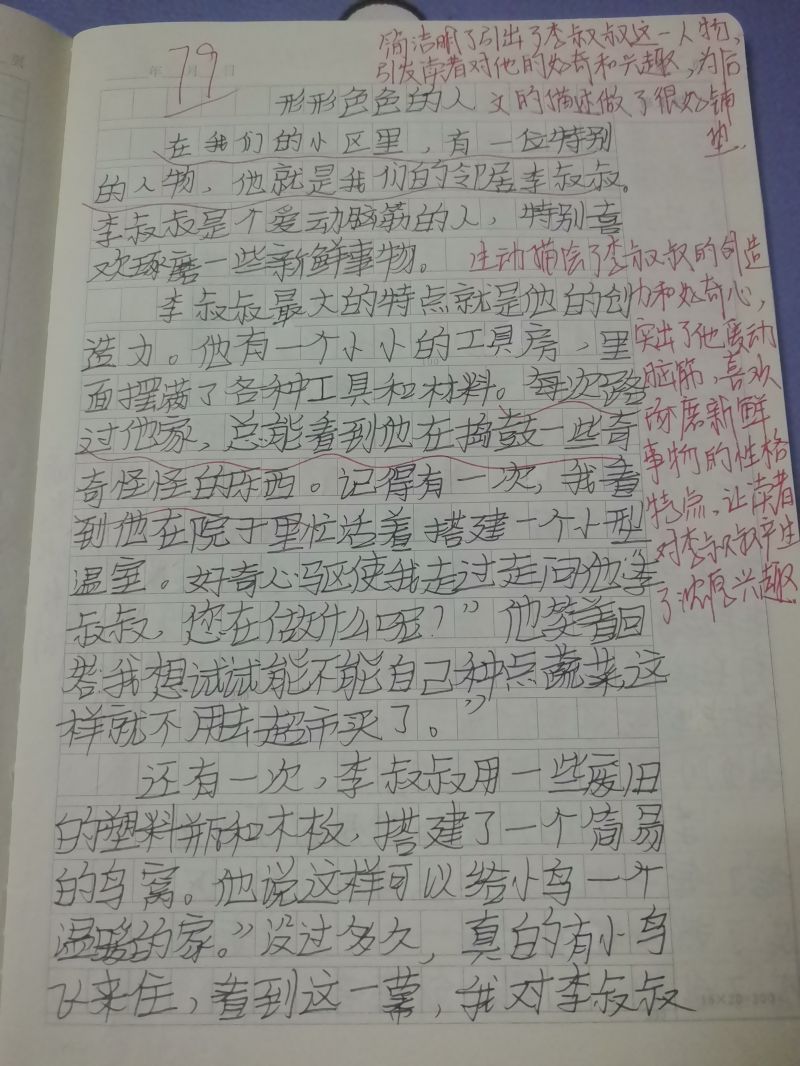 简洁明了引出了李叔叔这一人物,
引发读者对他的好奇和兴趣,为后
文的描述做了很好铺
垫.
79
年 月 日
形形色色的人
在我们的小区里，有一位特别
的人物，他就是我们的邻居李叔叔。
李叔叔是个爱动脑筋的人，特别喜
欢琢磨一些新鲜事物。
李叔叔最大的特点就是他的创
造力。他有一个小小的工具房，里
面摆满了各种工具和材料。每次路
过他家，总能看到他在捣鼓一些奇
奇怪怪的东西。记得有一次，我看
到他在院子里忙活着搭建一个小型
温室。好奇心驱使我走过走问他“李
叔叔，您在做什么呢？”他笑着回
答我想试试能不能自己种点蔬菜,这
样就不用去超市买了。”
还有一次，李叔叔用一些废旧
的塑料瓶和木板，搭建了一个简易
的鸟窝。他说这样可以给小鸟一个
温暖的家。”没过多久，真的有小鸟
飞来住，看到这一幕，我对李叔叔
生动描绘了李叔叔的创造
力和好奇心,
突出了他爱动
脑筋、喜欢
琢磨新鲜
事物的性格
特点,让读者
对李叔叔产生
了浓厚兴趣.
15×20=300